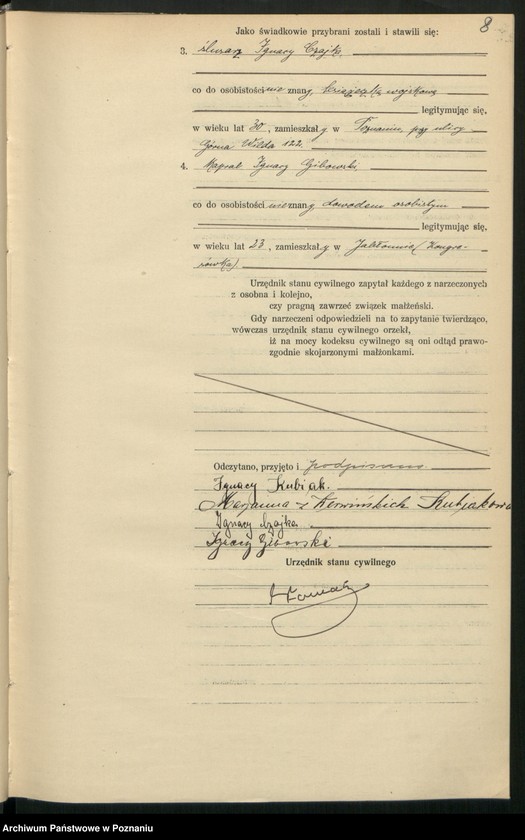 8
Jako świadkowie przybrani zostali i stawili się:
3. ślusarz Ignacy Czajka
co do osobistości nie znany, książeczką wojskową
legitymując się,
w wieku lat 30, zamieszkały w Poznaniu, przy ulicy
Górna Wilda 122.
4. Kapral Ignacy Giborski
co do osobistości nieznany dowodem osobistym
legitymując się,
w wieku lat 23, zamieszkały w Jabłonnie (Kongre-
sówka)
Urzędnik stanu cywilnego zapytał każdego z narzeczonych
z osobna i kolejno,
czy pragną zawrzeć związek małżeński.
Gdy narzeczeni odpowiedzieli na to zapytanie twierdząco,
wówczas urzędnik stanu cywilnego orzekł,
iż na mocy kodeksu cywilnego są oni odtąd prawo-
zgodnie skojarzonymi małżonkami.
Odczytano, przyjęto i podpisano.
Ignacy Kubiak.
Marjanna z Kubjakowa
Ignacy Czajka
Ignacy Giborski
Urzędnik stanu cywilnego
Archiwum Państwowe w Poznaniu